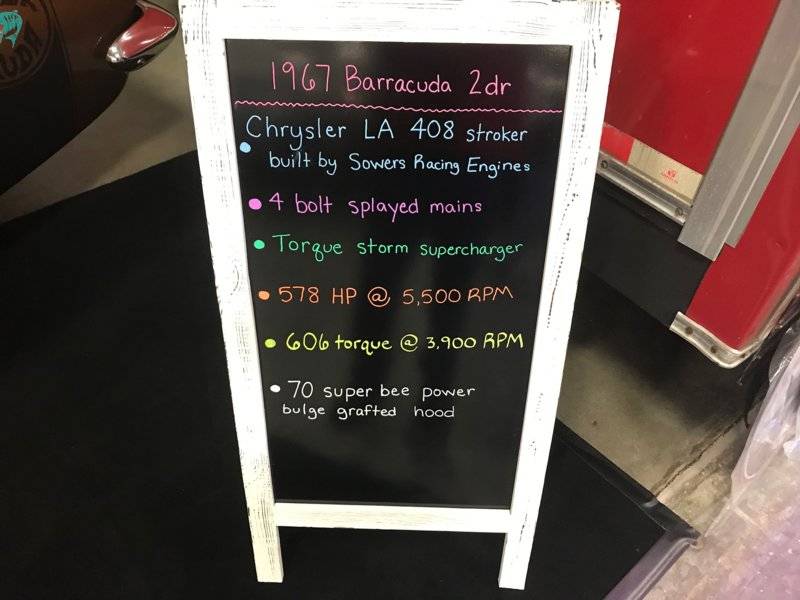 1967 Barracuda 2dr
Chrysler LA 408 stroker
• built by Sowers Racing Engines
• 4 bolt splayed mains
• Torque storm supercharger
• 578 HP @ 5,500 RPM
• 606 torque @ 3,900 RPM
• 70 super bee power
bulge grafted hood